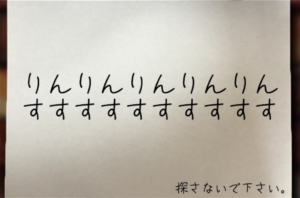 りんりんりんりんりん
すすすすすすすすすす
探さないで下さい。